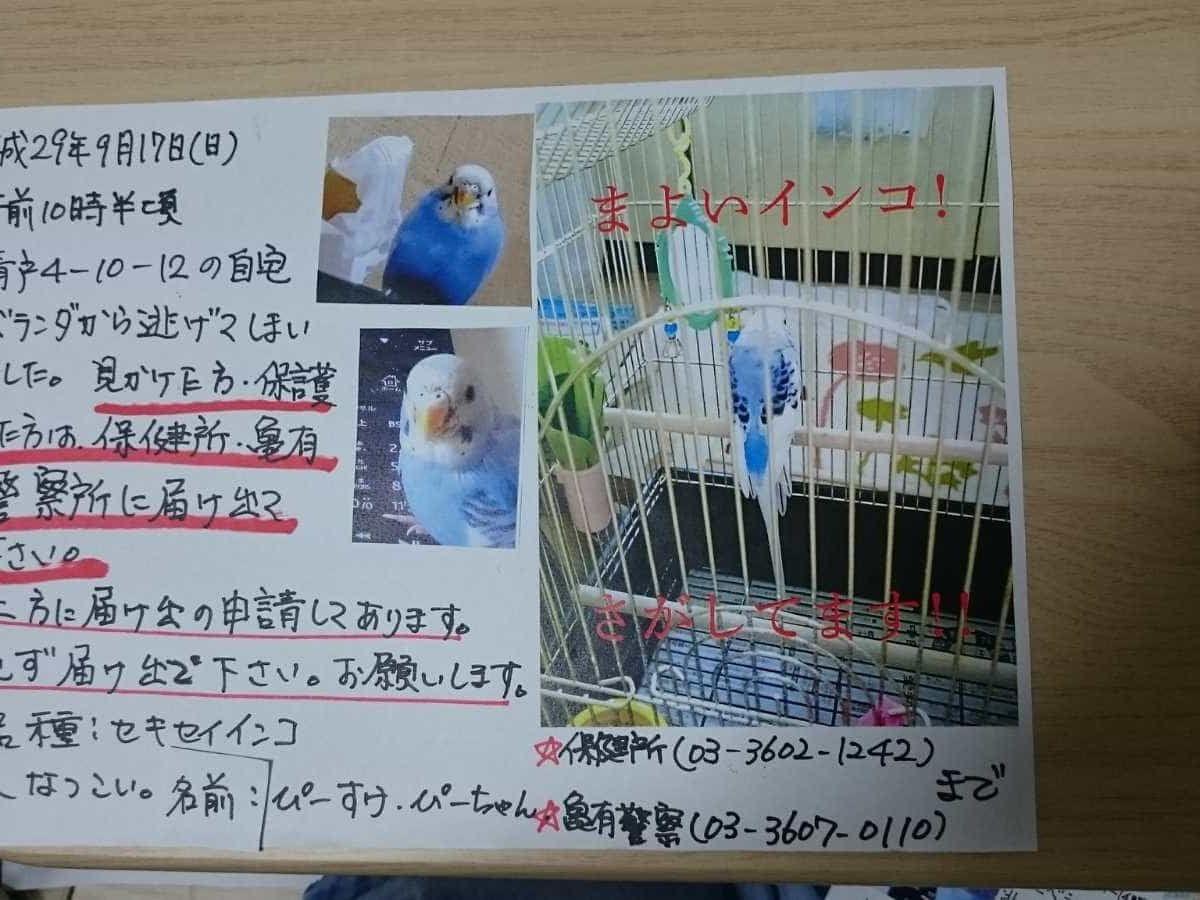 成29年9月17日(日)
午前10時半頃
青戸4-10-12の自宅
ベランダから逃げてしまい
した。見かけた方・保護
た方は、保健所・亀有
警察所に届け出て
下さい。
方に届け出の申請してあります。
ず届け出て下さい。お願いします。
品種:セキセイインコ
なつこい。名前:ぴーすけ・ぴーちゃん
まよいインコ!
さがしてます!!
☆保健所(03-3602-1242)
まで
☆亀有警察(03-3607-0110)